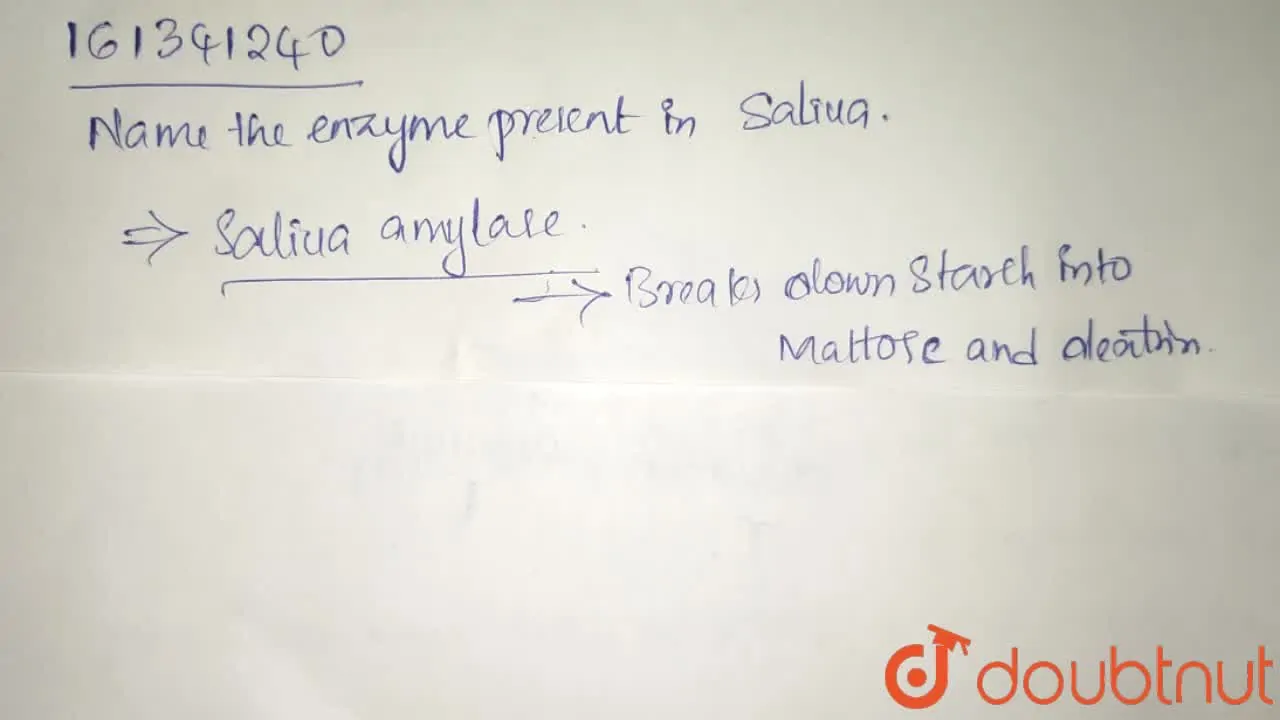 161341240
Name the enzyme present in Saliva.
⇒ Saliva amylase.
→ Breaks down Starch into
Maltose and dextrin.
doubtnut